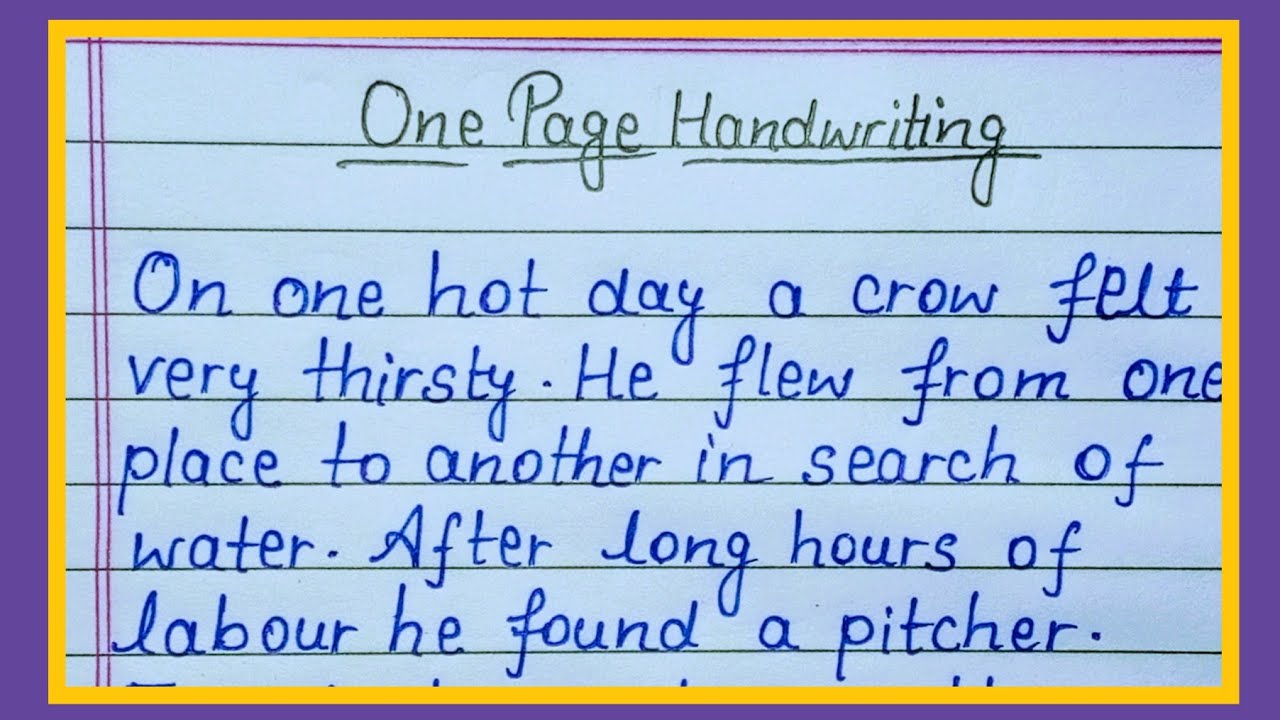 One Page Handwriting
On one hot day a crow felt
very thirsty. He flew from one
place to another in search of
water. After long hours of
labour he found a pitcher.